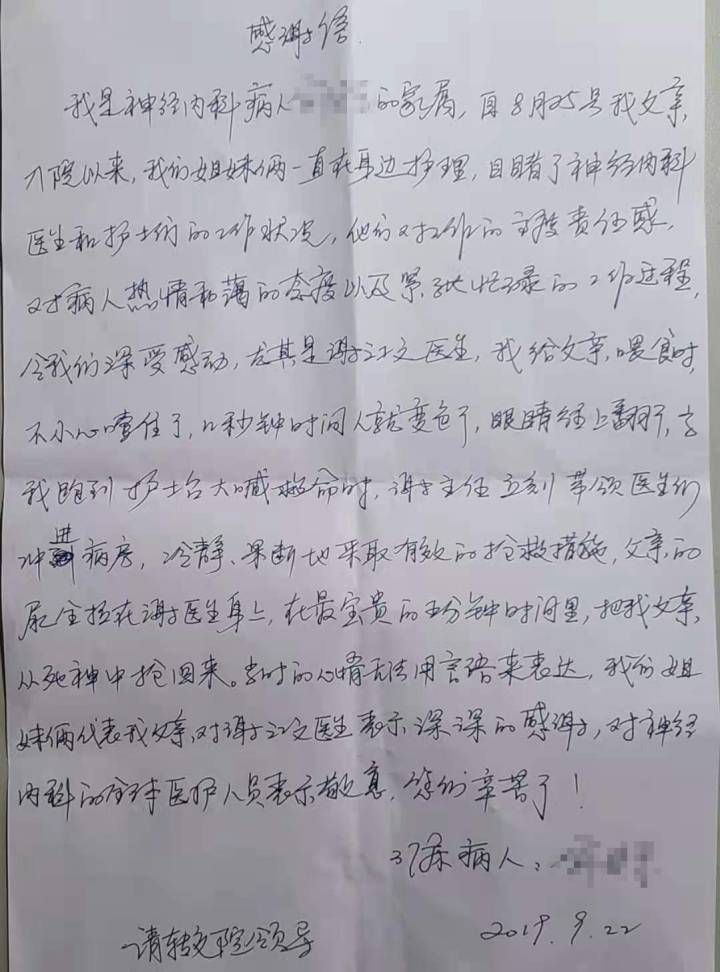 感谢信
我是神经内科病人 的家属，自8月25号我父亲
入院以来，我们姐妹俩一直在身边护理，目睹了神经内科
医生和护士们的工作状况，他们对工作的高度责任感，
对病人热情和蔼的态度以及紧张忙碌的工作过程，
令我们深受感动，尤其是谢江文医生，我给父亲喂食时，
不小心噎住了，几秒钟时间人就变色了，眼睛往上翻了，当
我跑到护士台大喊救命时，谢主任立刻带领医生们
冲进病房，冷静、果断地采取有效的抢救措施，父亲的
尿全拉在谢医生身上，在最宝贵的五分钟时间里，把我父亲
从死神中抢回来。当时的心情无法用言语来表达，我们姐
妹俩代表我父亲对谢江文医生表示深深的感谢，对神经
内科的全体医护人员表示敬意，您们辛苦了！
37床病人：
请转交院领导
2019.9.22